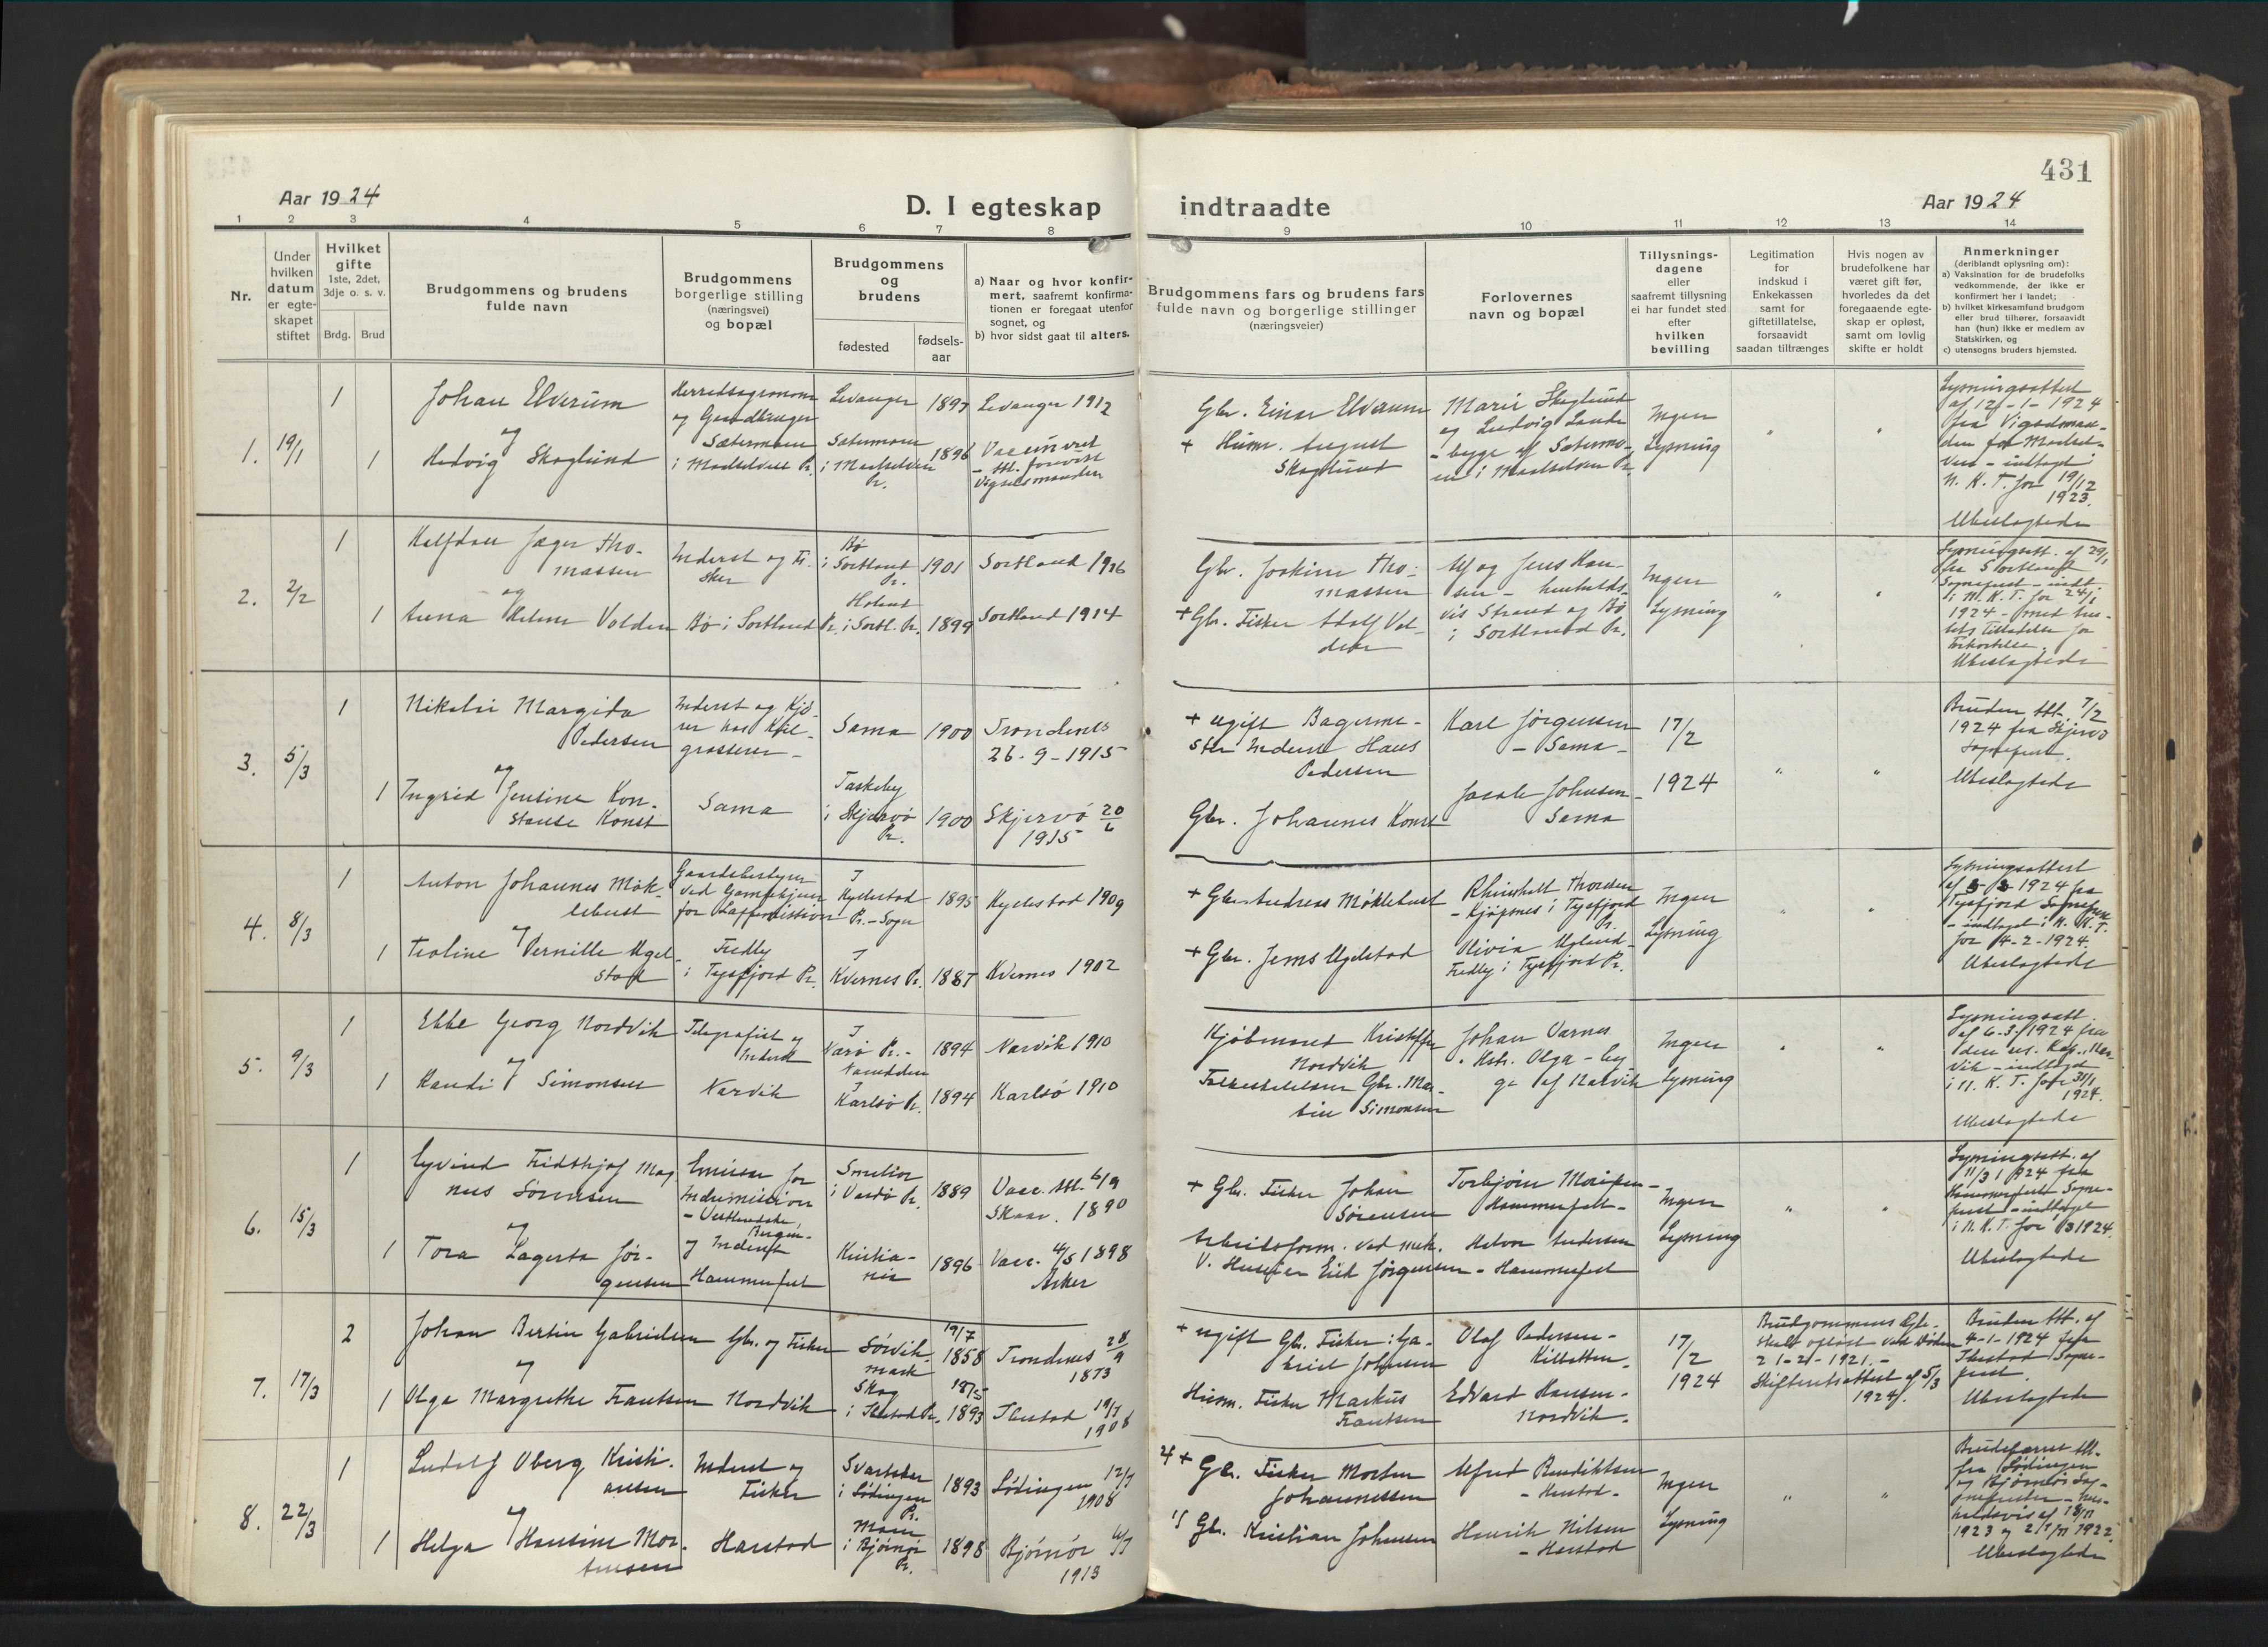 431
Aar 1924
D. I egteskap
indtraadte
Aar 1924
1 2 3 4 5 6 7 8 9 10 11 12 13 14
Nr.
Under
hvilken
datum
er egte-
skapet
stiftet
Hvilket
gifte
1ste, 2det,
3dje o. s. v.
Brdg. Brud
Brudgommens og brudens
fulde navn
Brudgommens
borgerlige stilling
(næringsvei)
og bopæl
Brudgommens
og
brudens
fødested
fødsels-
aar
a) Naar og hvor konfir-
mert, saafremt konfirma-
tionen er foregaat utenfor
sognet, og
b) hvor sidst gaat til alters.
Brudgommens fars og brudens fars
fulde navn og borgerlige stillinger
(næringsveier)
Forlovernes
navn og bopæl
Tillysnings-
dagene
eller
saafremt tillysning
ei har fundet sted
efter
hvilken
bevilling
Legitimation
for
indskud i
Enkekassen
samt for
giftetillatelse,
forsaavidt
saadan tiltrænges
Hvis nogen av
brudefolkene har
været gift før,
hvorledes da det
foregaaende egte-
skap er opløst,
samt om lovlig
skifte er holdt
Anmerkninger
(deriblandt oplysning om):
a) Vaksination for de brudefolks
vedkommende, der ikke er
konfirmert her i landet;
b) hvilket kirkesamfund brudgom
eller brud tilhører, forsaavidt
han (hun) ikke er medlem av
Statskirken, og
c) utensogns bruders hjemsted.
1. 19/1
1 Johan Elverum
og
1 Hedvig Skoglund
Herredsagronom
og Gaardbruger
Sætermoen
i Maalselven Pr.
Levanger 1897 Levanger 1912
Sætermoen
i Maalselven
Pr.
1896
Gbr. Einar Elverum
+ Husm. August
Skoglund
Marie Skoglund
og Ludvig
- begge af Sætermo-
en i Maalselven Pr.
Ingen
Lysning
Lysningsattest
af 12/-1-1924
N. K. T. for 19/12
1923.
Ubeslægtede
2. 2/2
1 Halfdan Jæger Tho-
massen
og
1 Anna Helene Volden
Inderst og Fi-
sker
Bø i Sortland Pr.
Bø
i Sortland
Pr.
1901
i Sortl. Pr. 1899
Sortland 1916
Sortland 1914
Gbr. Joakim Tho-
massen
+ Gbr. Fisker Adolf Vol-
den
Alf og Jens Han-
sen - henholds-
vis Strand og Bø
i Sortland Pr.
Ingen
Lysning
Lysningsatt. af 29/1
fra Sortland
Sogneprest - indt.
i N. K. T. for 24/1
1924
Ubeslægtede
3. 5/3
1 Nikolai Margido
Pedersen
og
1 Ingrid Jensine Kon-
stanse Konst
Inderst og Kjø-
rer
Sama
Sama 1900 Trondenes
26-9-1915
Taskeby
i Skjervø
Pr.
1900 Skjervø 20/6
1915
+ ugift Bagerme-
ster Inderst Hans
Pedersen
Gbr. Johannes Konst
Karl Jørgensen
- Sama -
Jacob Johnsen -
Sama
17/2
1924
Bruden Att. 7/2
1924 fra Skjervø
Sogneprest.
Ubeslægtede
4. 8/3
1 Anton Johannes Møk-
lebust
og
1 Teoline Pernille Ugel-
stad
Gaardsbestyrer
for Lappemission
Fredly
i Tysfjord Pr.
I
Hyllestad
Pr. - Sogn
1895 Hyllestad 1909
I
Kvernes Pr. 1887 Kvernes 1902
+ Gbr. Andreas Møklebust
+ Gbr. Jens Ugelstad
Thordsen
- Kjøpsnes i Tysfjord
Pr.
Olivia
Fredly i Tysfjord Pr.
Ingen
Lysning
Lysningsattest
1924 fra
Tysfjord Sognepr.
- indtaget i N. K. T.
for 14-2-1924.
Ubeslægtede
5. 9/3
1 Ebbe Georg Nordvik
og
1 Randi Simonsen
Telegrafist og
Inderst
Narvik
I
Nærø Pr. -
Namdalen
1894 Narvik 1910
I
Karlsø Pr. 1894 Karlsø 1910
Kjøbmand Kristoffer
Nordvik
Gbr. Mar-
tin Simonsen
Johan Varnes
Hstr. Olga - beg-
ge af Narvik
Ingen
Lysning
Lysningsatt.
af 6-3-1924 fra
den res. Kap., Nar-
vik - indtaget
i N. K. T. for 31/1
1924.
Ubeslægtede
6. 15/3
1 Eyvind Fridthjof Mag-
nus Sørensen
og
1 Tora Lagerta Jør-
gensen
Emissær for
Indremission
- Vestlandske,
Bergen -
og Inderst
Hammerfest
i Vardø Pr. 1889
Vacc. Att. 6/9
1890
Kristia-
nia
1896 Vacc. 4/5 1898
Asker
+ Gbr. Fisker Johan
Sørensen
Arbeidsform. ved mek.
V. Erik Jørgensen
Torbjørn
Hammerfest -
Andersen
- Hammerfest
Ingen
Lysning
Lysningsatt. af
11/3 1924 fra
Hammerfest Sogne-
prest - indtaget
i N. K. T. for
1924.
Ubeslægtede
7. 17/3
2 Johan Bertin Gabrielsen
og
1 Olga Margrethe Frantsen
Gbr. og Fisker
Nordvik
Sørvik-
mark
19/7
1858
Trondenes 28/9
1873
Skog
i Ibestad Pr.
18/5
1893
Ibestad
1908
+ ugift Gbr. Fisker: Ga-
briel Johnsen
Husm. Fisker Markus
Frantsen
Olaf Pedersen -
Kilbotten -
Edvard Hansen -
Nordvik -
17/2
1924
Brudgommens Egte-
skab opløst ved Døden
21-21-1921. -
Skifteretsattest af 5/3
1924.
Bruden Att. af
4-1-1924 fra
Ibestad Sogne-
prest.
Ubeslægtede
8. 22/3
1 Ludolf Oberg Kristi-
ansen
og
1 Helga Hansine Mor-
tensen
Inderst og
Fisker
Harstad
i Lødingen
Pr.
1893
Lødingen 12/7
1908
i Bjørnør
Pr.
1898
Bjørnør
1913
+ Gbr. Fisker Morten
Johannessen
Gbr. Kristian Johansen
Alfred Benediktsen
- Harstad -
Henrik Nilsen
- Harstad
Ingen
Lysning
Brudeparret Att.
fra Lødingen
og Bjørnør Sog-
neprester - hen-
holdsvis af 13/11
1923
Ubeslægtede